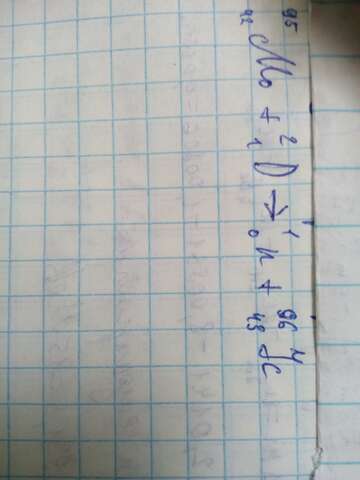 ⁹⁵₄₂Mo + ²₁D → ¹₀n + ⁹⁶₄₃Tc